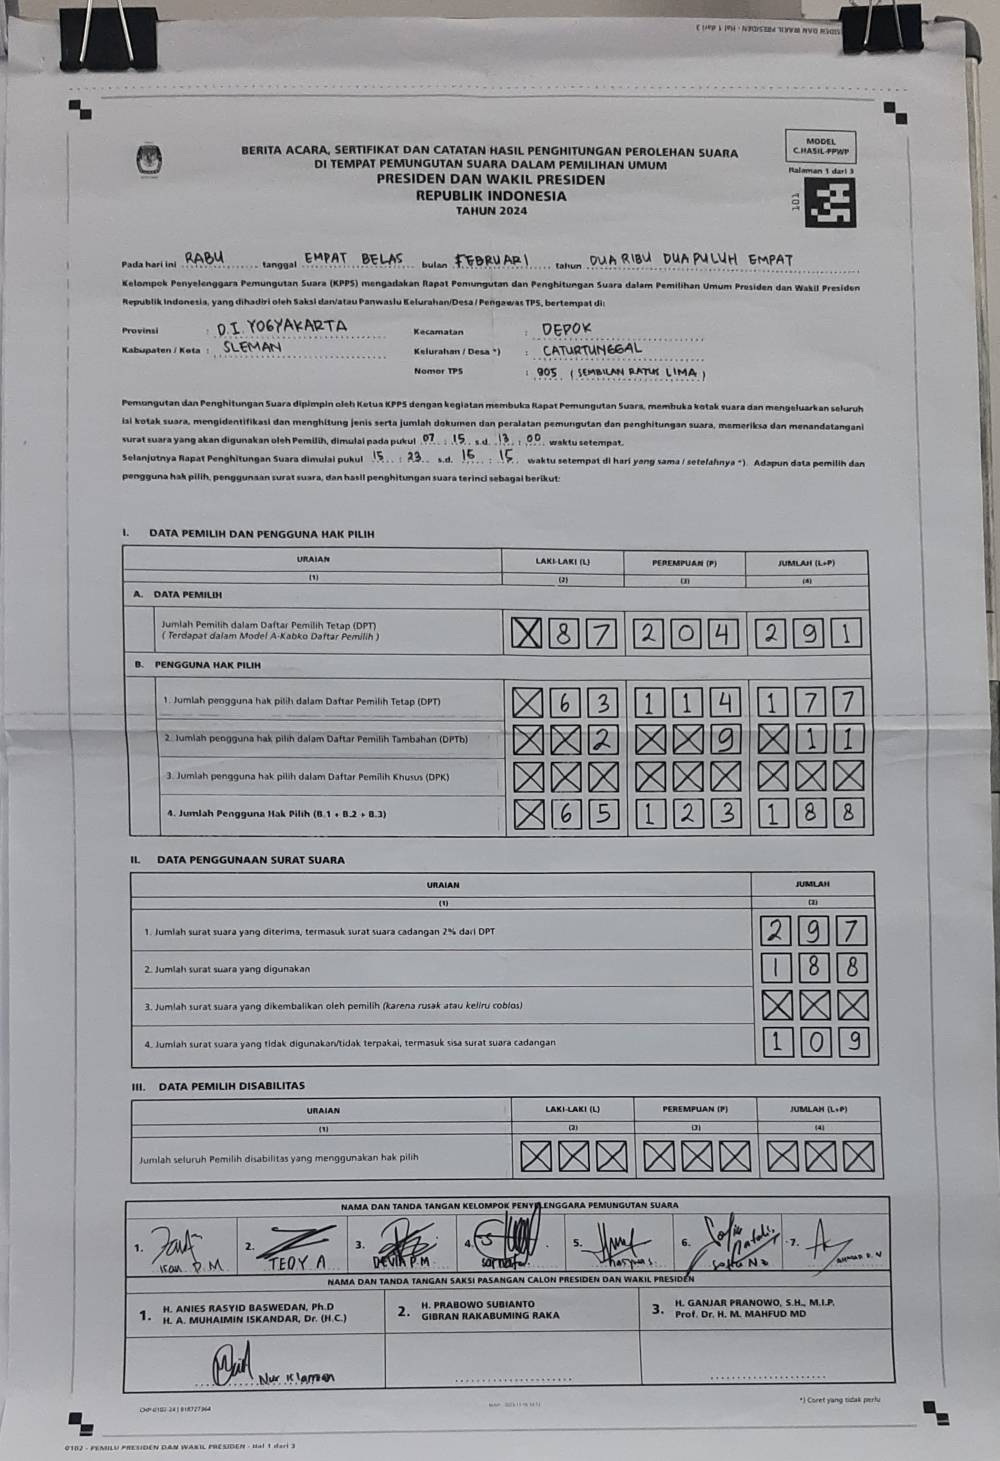 BERITA ACARA, SERTIFIKAT DAN CATATAN HASIL PENGHITUNGAN PEROLEHAN SUARA
DI TEMPAT PEMUNGUTAN SUARA DALAM PEMILIHAN UMUM
PRESIDEN DAN WAKIL PRESIDEN
REPUBLIK INDONESIA
TAHUN 2024
MODEL
C.HASIL-PPWP
Halaman 1 dari 3
101
Pada hari ini RABU tanggal EMPAT BELAS bulan FEBRUARI tahun DUA RIBU DUA PULUH EMPAT
Kelompok Penyelenggara Pemungutan Suara (KPPS) mengadakan Rapat Pemungutan dan Penghitungan Suara dalam Pemilihan Umum Presiden dan Wakil Presiden
Republik Indonesia, yang dihadiri oleh Saksi dan/atau Panwaslu Kelurahan/Desa / Pengawas TPS, bertempat di:
Provinsi : D.I. YOGYAKARTA Kecamatan : DEPOK
Kabupaten / Kota : SLEMAN Kelurahan / Desa *) : CATURTUNGGAL
Nomor TPS : 905 (SEMBILAN RATUS LIMA)
Pemungutan dan Penghitungan Suara dipimpin oleh Ketua KPPS dengan kegiatan membuka Rapat Pemungutan Suara, membuka kotak suara dan mengeluarkan seluruh
isi kotak suara, mengidentifikasi dan menghitung jenis serta jumlah dokumen dan peralatan pemungutan dan penghitungan suara, memeriksa dan menandatangani
surat suara yang akan digunakan oleh Pemilih, dimulai pada pukul 07 : 15 s.d. 13 : 00 waktu setempat.
Selanjutnya Rapat Penghitungan Suara dimulai pukul 15 : 23 s.d. 15 : 15 waktu setempat di hari yang sama / setelahnya *). Adapun data pemilih dan
pengguna hak pilih, penggunaan surat suara, dan hasil penghitungan suara terinci sebagai berikut:
I. DATA PEMILIH DAN PENGGUNA HAK PILIH
URAIAN LAKI-LAKI (L) PEREMPUAN (P) JUMLAH (L+P)
(1) (2) (3) (4)
A. DATA PEMILIH
Jumlah Pemilih dalam Daftar Pemilih Tetap (DPT) X 8 7 2 0 4 2 9 1
( Terdapat dalam Model A-Kabko Daftar Pemilih )
B. PENGGUNA HAK PILIH
1. Jumlah pengguna hak pilih dalam Daftar Pemilih Tetap (DPT) X 6 3 1 1 4 1 7 7
2. Jumlah pengguna hak pilih dalam Daftar Pemilih Tambahan (DPTb) X X 2 X X 9 X 1 1
3. Jumlah pengguna hak pilih dalam Daftar Pemilih Khusus (DPK) X X X X X X X X X
4. Jumlah Pengguna Hak Pilih (B.1 + B.2 + B.3) X 6 5 1 2 3 1 8 8
II. DATA PENGGUNAAN SURAT SUARA
URAIAN JUMLAH
(1) (2)
1. Jumlah surat suara yang diterima, termasuk surat suara cadangan 2% dari DPT 2 9 7
2. Jumlah surat suara yang digunakan 1 8 8
3. Jumlah surat suara yang dikembalikan oleh pemilih (karena rusak atau keliru coblos) X X X
4. Jumlah surat suara yang tidak digunakan/tidak terpakai, termasuk sisa surat suara cadangan 1 0 9
III. DATA PEMILIH DISABILITAS
URAIAN LAKI-LAKI (L) PEREMPUAN (P) JUMLAH (L+P)
(1) (2) (3) (4)
Jumlah seluruh Pemilih disabilitas yang menggunakan hak pilih X X X X X X X X X
NAMA DAN TANDA TANGAN KELOMPOK PENYELENGGARA PEMUNGUTAN SUARA
1. 2. 3. 4. 5. 6. 7.
P.M. TEDY A DEVIA P.M
NAMA DAN TANDA TANGAN SAKSI PASANGAN CALON PRESIDEN DAN WAKIL PRESIDEN
1. H. ANIES RASYID BASWEDAN, Ph.D
H. A. MUHAIMIN ISKANDAR, Dr. (H.C.)
2. H. PRABOWO SUBIANTO
GIBRAN RAKABUMING RAKA
3. H. GANJAR PRANOWO, S.H., M.I.P.
Prof. Dr. H. M. MAHFUD MD
Nur
*) Coret yang tidak perlu
0102 - PEMILU PRESIDEN DAN WAKIL PRESIDEN - Hal 1 dari 3